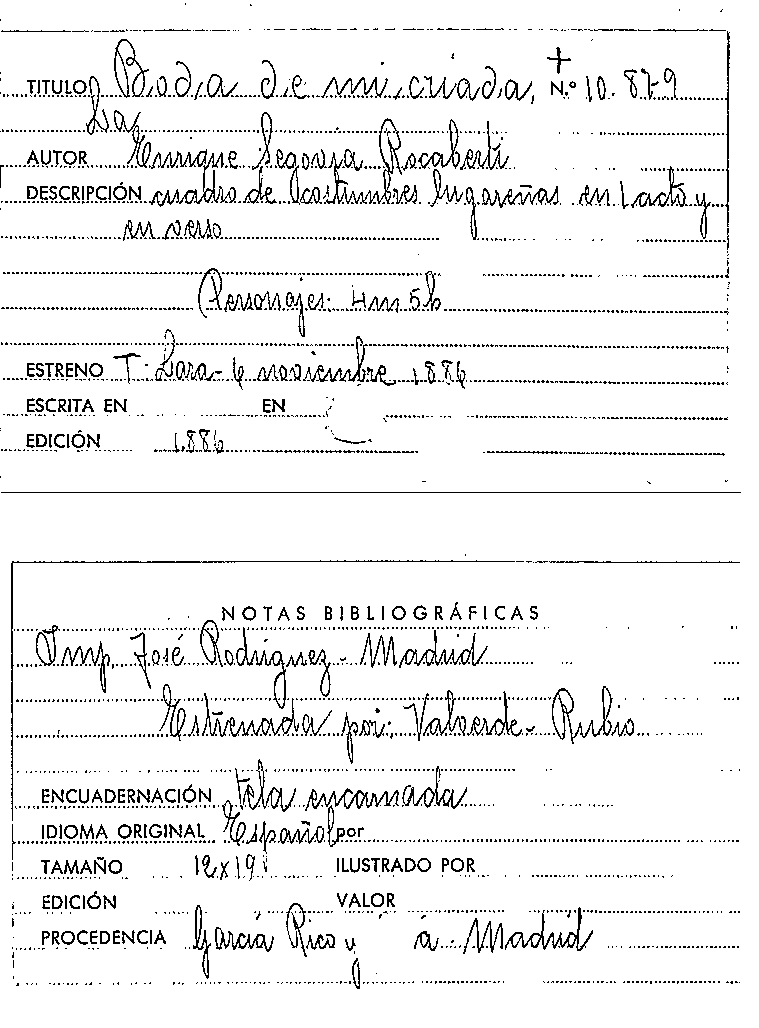 +
TITULO Boda de mi criada, N.º 10.879
La
AUTOR Enrique Segovia Rocaberti
DESCRIPCIÓN cuadro de costumbres lugareñas en 1 acto y
en verso
Personajes: 4m 5h
ESTRENO T. Lara - 6 noviembre 1886
ESCRITA EN EN
EDICIÓN 1886
NOTAS BIBLIOGRÁFICAS
Imp. José Rodríguez - Madrid
Estrenada por: Valverde - Rubio
ENCUADERNACIÓN tela encarnada
IDIOMA ORIGINAL Español por
TAMAÑO 12x19 ILUSTRADO POR
EDICIÓN VALOR
PROCEDENCIA García Rico y à Madrid